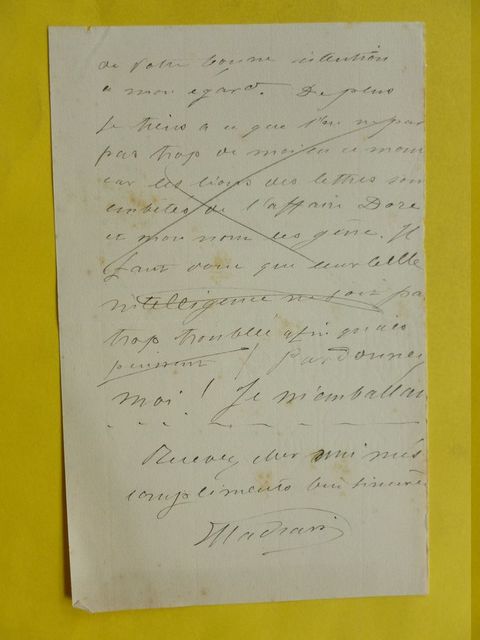 de votre bonne intention
à mon égard. De plus
je tiens à ce que l'on ne par
pas trop de moi en ce mom
car les lions des lettres son
embêtés de l'affaire Doré
et mon nom les gêne. Il
faut donc que leur belle
intelligence ne soit pa
trop troublée afin qu'ils
puissent ! Pardonnez
moi ! Je m'emballai
Recevez cher ami mes
compliments bien sincère